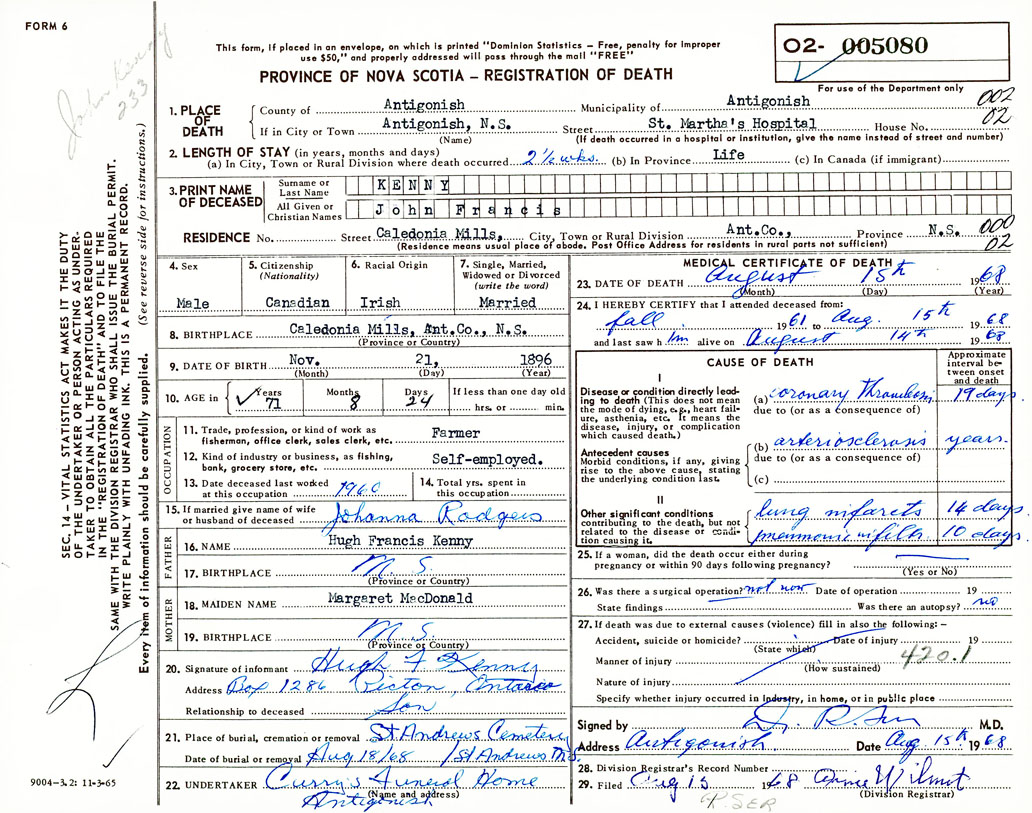 FORM 6
This form, if placed in an envelope, on which is printed "Dominion Statistics – Free, penalty for improper
use $50," and properly addressed will pass through the mail "FREE"
PROVINCE OF NOVA SCOTIA – REGISTRATION OF DEATH
02- 005080
For use of the Department only
002
02
John Kenny
233
SEC. 14 – VITAL STATISTICS ACT MAKES IT THE DUTY
OF THE UNDERTAKER OR PERSON ACTING AS UNDER-
TAKER TO OBTAIN ALL THE PARTICULARS REQUIRED
IN THE "REGISTRATION OF DEATH" AND TO FILE THE
SAME WITH THE DIVISION REGISTRAR WHO SHALL ISSUE THE BURIAL PERMIT.
WRITE PLAINLY WITH UNFADING INK. THIS IS A PERMANENT RECORD.
Every item of information should be carefully supplied. (See reverse side for instructions.)
1. PLACE OF DEATH
County of Antigonish Municipality of Antigonish
If in City or Town Antigonish, N.S. Street St. Martha's Hospital House No.
(Name) (If death occurred in a hospital or institution, give the name instead of street and number)
2. LENGTH OF STAY (in years, months and days)
(a) In City, Town or Rural Division where death occurred 2½ wks. (b) In Province Life (c) In Canada (if immigrant)
3. PRINT NAME OF DECEASED
Surname or Last Name KENNY
All Given or Christian Names John Francis
RESIDENCE No. Street Caledonia Mills, City, Town or Rural Division Ant.Co., Province N.S. 000
02
(Residence means usual place of abode. Post Office Address for residents in rural parts not sufficient)
4. Sex Male
5. Citizenship (Nationality) Canadian
6. Racial Origin Irish
7. Single, Married, Widowed or Divorced (write the word) Married
8. BIRTHPLACE Caledonia Mills, Ant.Co., N.S.
(Province or Country)
9. DATE OF BIRTH Nov. 21, 1896
(Month) (Day) (Year)
10. AGE in Years 71 Months 8 Days 24 If less than one day old hrs. or min.
OCCUPATION
11. Trade, profession, or kind of work as fisherman, office clerk, sales clerk, etc. Farmer
12. Kind of industry or business, as fishing, bank, grocery store, etc. Self-employed.
13. Date deceased last worked at this occupation 1960
14. Total yrs. spent in this occupation
15. If married give name of wife or husband of deceased Johanna Rodgers
FATHER
16. NAME Hugh Francis Kenny
17. BIRTHPLACE N. S.
(Province or Country)
MOTHER
18. MAIDEN NAME Margaret MacDonald
19. BIRTHPLACE N. S.
(Province or Country)
20. Signature of informant Hugh F Kenny
Address Box 1286 Picton, Ontario
Relationship to deceased Son
21. Place of burial, cremation or removal St Andrews Cemetery
Date of burial or removal Aug 18/68 / St Andrews N.S.
22. UNDERTAKER Curry's Funeral Home
(Name and address)
Antigonish
9004-3.2: 11-3-65
MEDICAL CERTIFICATE OF DEATH
23. DATE OF DEATH August 15th 1968
(Month) (Day) (Year)
24. I HEREBY CERTIFY that I attended deceased from:
fall 1961 to Aug. 15th 1968
and last saw h im alive on August 14th 1968
CAUSE OF DEATH
Approximate interval between onset and death
I
Disease or condition directly leading to death (This does not mean the mode of dying, e.g., heart failure, asthenia, etc. It means the disease, injury, or complication which caused death.)
(a) coronary thrombosis 19 days.
due to (or as a consequence of)
Antecedent causes
Morbid conditions, if any, giving rise to the above cause, stating the underlying condition last.
(b) arteriosclerosis years.
due to (or as a consequence of)
(c)
II
Other significant conditions contributing to the death, but not related to the disease or condition causing it.
lung infarcts 14 days
pneumonic 10 days.
25. If a woman, did the death occur either during pregnancy or within 90 days following pregnancy?
(Yes or No)
26. Was there a surgical operation? not now Date of operation 19
State findings Was there an autopsy? no
27. If death was due to external causes (violence) fill in also the following: –
Accident, suicide or homicide? Date of injury 19
(State which)
Manner of injury 420.1
(How sustained)
Nature of injury
Specify whether injury occurred in Industry, in home, or in public place
Signed by M.D.
Address Antigonish Date Aug. 15th 1968
28. Division Registrar's Record Number
29. Filed Aug 15 1968 Wilmot
(Division Registrar)